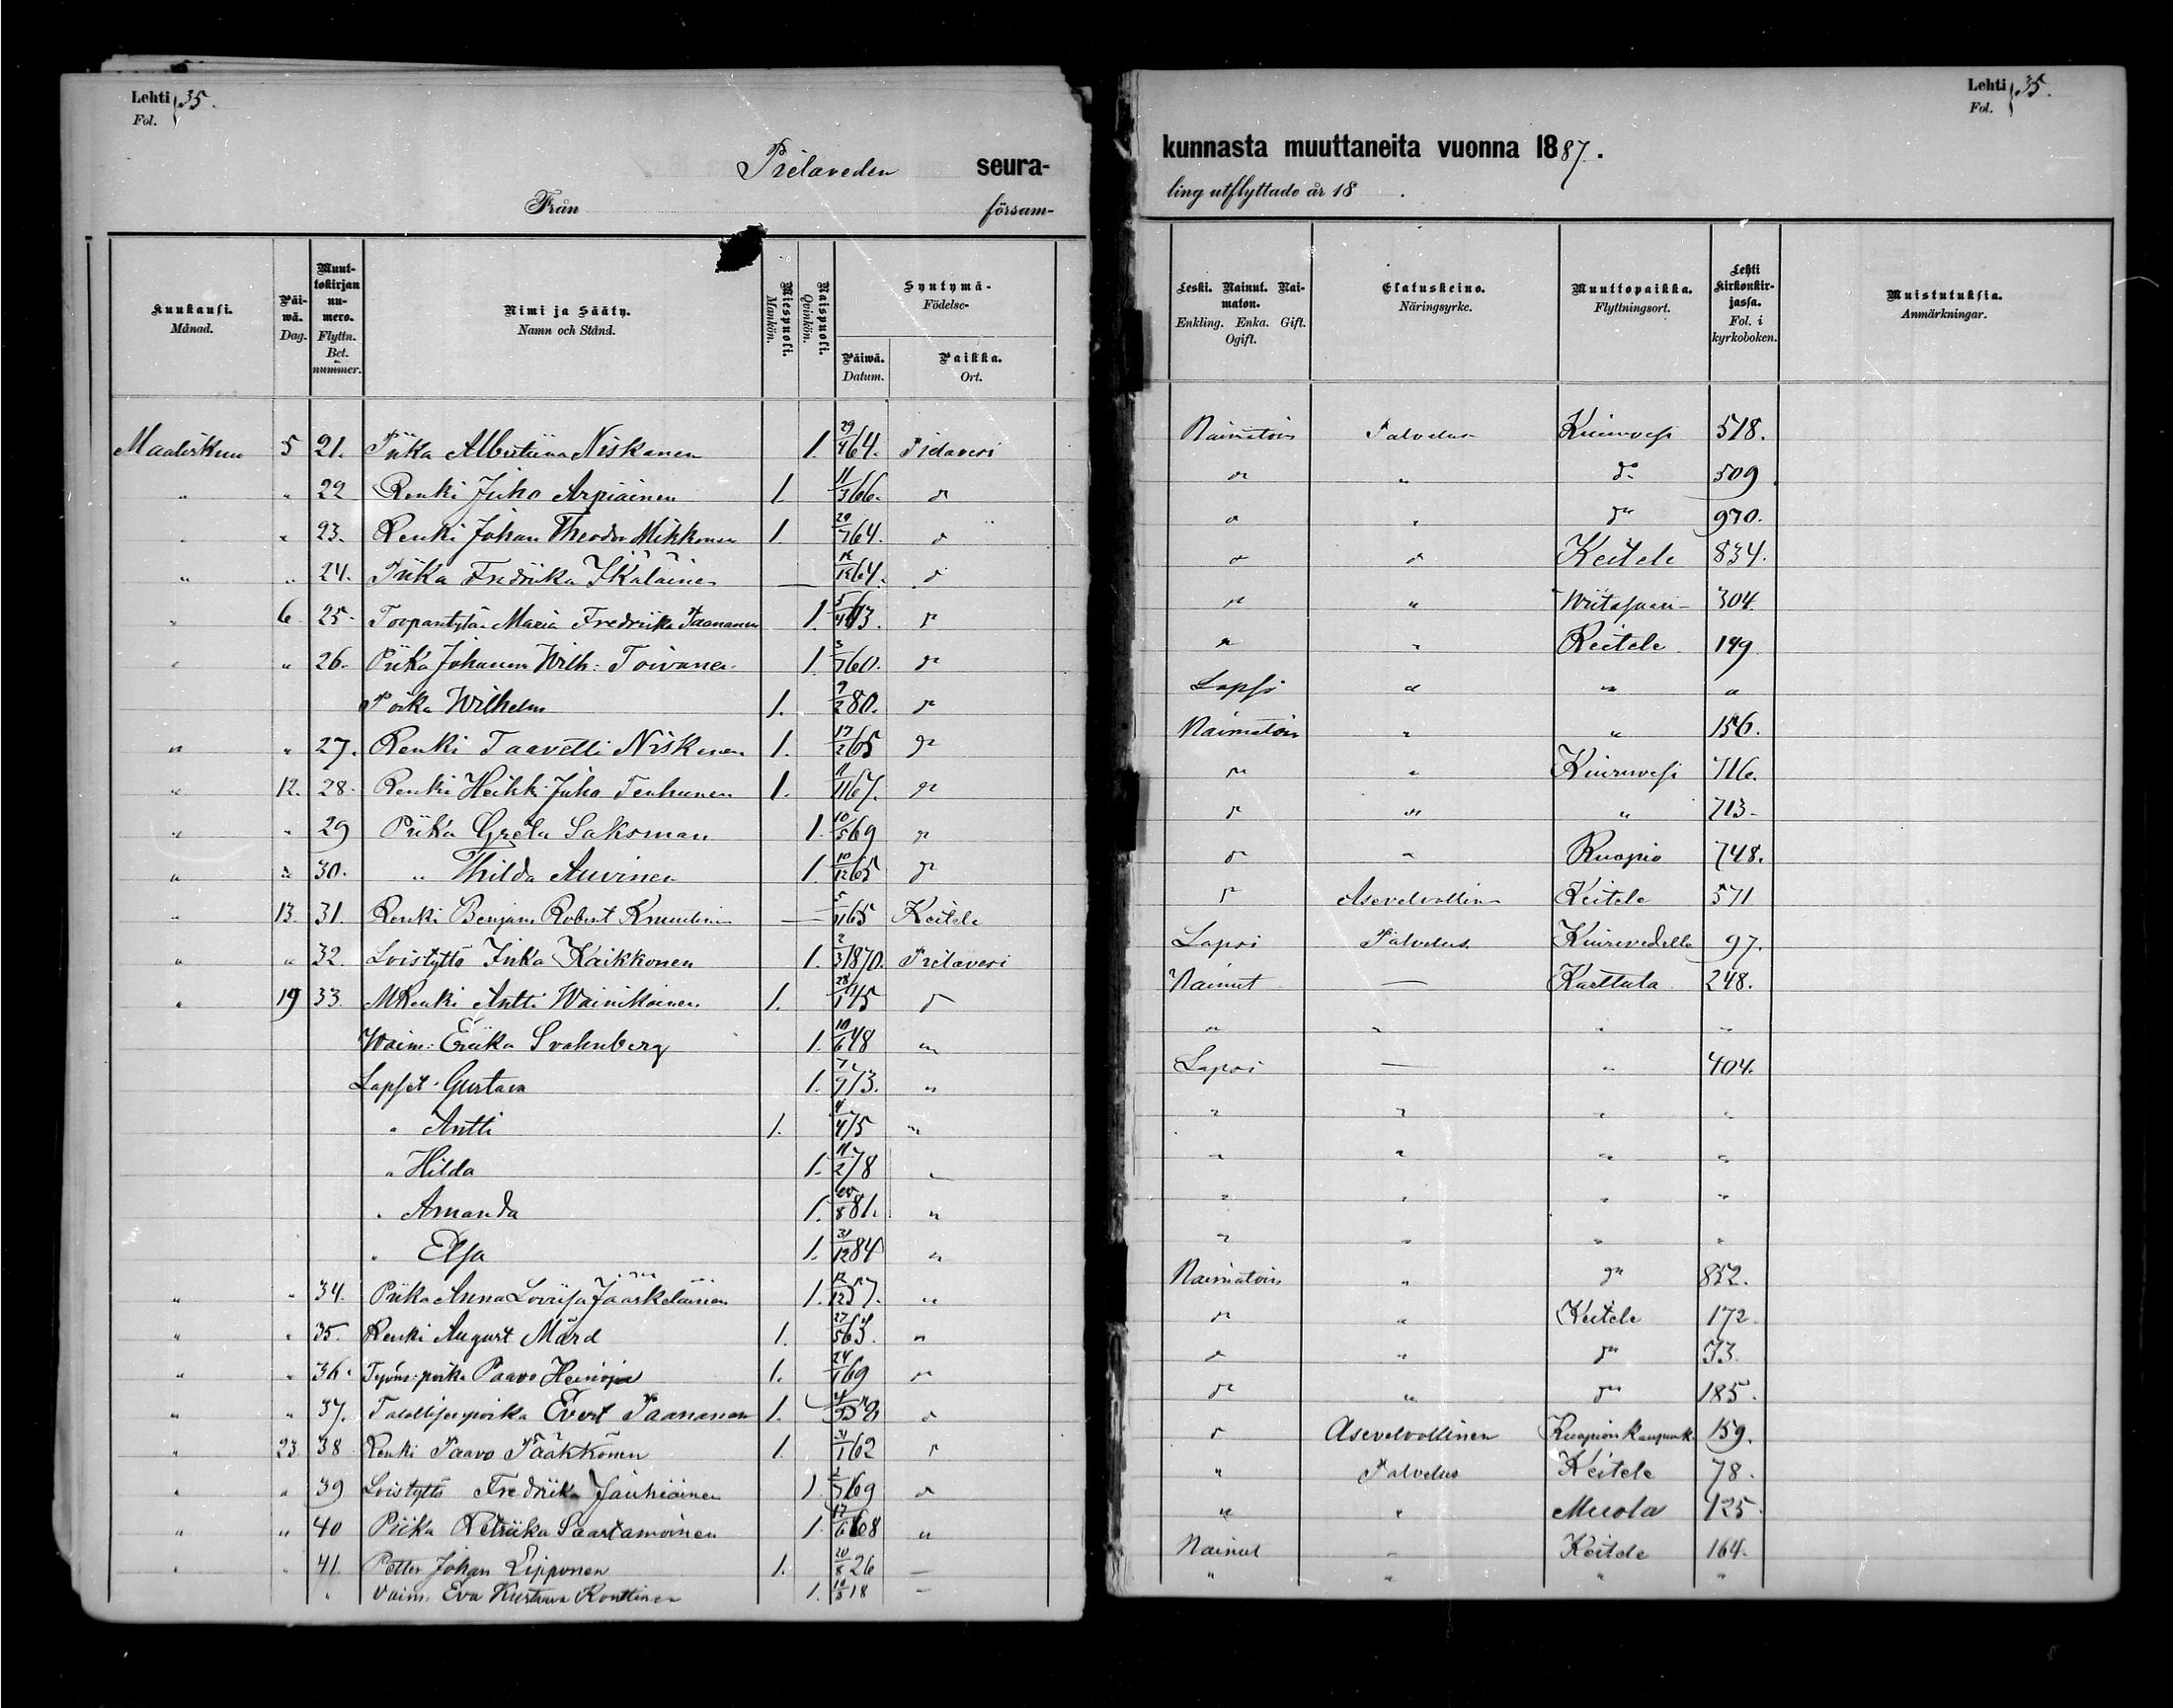 Lehti 35.
Fol.
Pielaveden seura-
Från försam-
Kuukausi. Månad.
Päiwä. Dag.
Muuttokirjan numero. Flyttn. Bet. nummer.
Nimi ja Sääty. Namn och Stånd.
Miespuoli. Mankön.
Naispuoli. Qvinkön.
Syntymä- Födelse-
Päiwä. Datum.
Paikka. Ort.
Maaliskuu 5 21. Piika Albertiina Niskanen 1. 29/4 64. Pielavesi
" " 22 Renki Juho Arpiainen 1. 11/3 66. do
" " 23. Renki Johan Theodor Mikkonen 1. 29/7 64. do
" " 24. Piika Fredrika Ikäläinen — 64. do
" 6 25. Maria Fredrika Paananen 1. 5/4 63. do
" " 26. Piika Johanna Wilh: Toivanen 1. 3/7 60. do
Poika Wilhelm 1. 9/2 80. do
" " 27. Renki Taavetti Niskanen 1. 17/2 65 do
" 12. 28. Renki Heikk Juho Tenhunen 1. 11/11 67. do
" " 29 Piika Greta Saksman 1. 10/5 69 do
" " 30. " Thilda Auvinen 1. 10/12 65 do
" 13. 31. Renki Benjam Robert — 5/11 65 Keitele
" " 32. Loistyttö Kaikkonen 1. 2/3 1870. Pielavesi
" 19 33. MRenki Antti Wainikainen 1. 28/1 45 do
Waim: Eriika Svahnberg 1. 10/6 48 "
Lapset. Gustava 1. 7/9 73. "
" Antti 1. 4/4 75 "
" Hilda 1. 11/2 78 "
" Amanda 1. 81. "
" Elsa 1. 31/12 84 "
" " 34. Piika Anna Loviisa Jääskeläinen 1. 12/12 57. "
" " 35. Renki August Mård 1. 27/5 63. "
" " 36. poika Paavo 1. 24/1 69 "
" " 37. Evert Paananen 1. do
" 23. 38 Renki Paavo Pääkkönen 1. 31/1 62 do
" " 39 Loistyttö Fredriika Jauhiainen 1. 69 do
" " 40 Piika Retriika Saastamoinen 1. 17/6 68 "
" " 41. Petter Johan Lipponen 1. 20/8 26 —
" Vaim. Eva Kustava Konttinen 1. 18 —
Lehti 35.
Fol.
kunnasta muuttaneita vuonna 1887.
ling utflyttade år 18 .
Leski. Nainut. Naimaton. Enkling. Enka. Gift. Ogift.
Elatuskeino. Näringsyrke.
Muuttopaikka. Flyttningsort.
Lehti kirkonkirjassa. Fol. i kyrkoboken.
Muistutuksia. Anmärkningar.
Naimatoin Palvelus Kiuruvesi 518.
do " do 509
do " do 970.
do do Keitele 834.
do " Wiitasaari 304.
do " Keitele 149
Lapsi " " "
Naimatoin " " 156.
do " Kiuruvesi 716.
do " " 713.
do " Kuopio 748.
do Asevelvollinen Keitele 571
Lapsi Palvelus Kiuruvedelle 97.
Nainut — Karttula 248.
" " " "
Lapsi — " 404.
" " " "
" " " "
" " " "
" " " "
Naimatoin " do 852.
do " Keitele 172.
do " do 33.
do " do 185.
do Asevelvollinen Kuopion kaupunk. 159.
" Palvelus Keitele 78.
" " Muola 125.
Nainut " Keitele 164.
" " " "